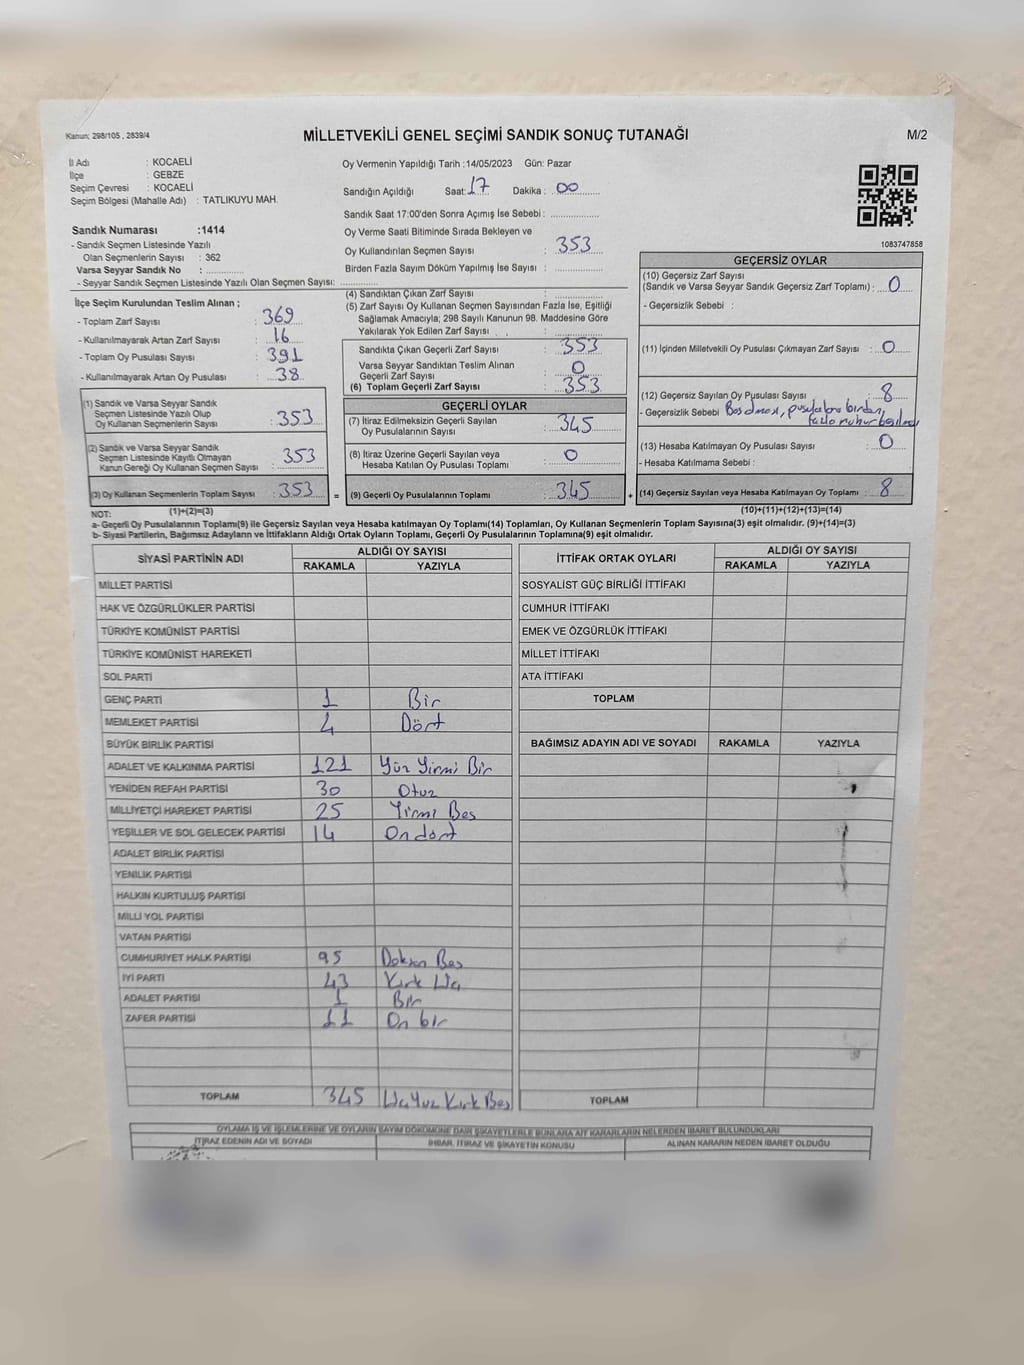 Kanun; 298/105 , 2839/4
MİLLETVEKİLİ GENEL SEÇİMİ SANDIK SONUÇ TUTANAĞI
M/2
İl Adı : KOCAELİ
İlçe : GEBZE
Seçim Çevresi : KOCAELİ
Seçim Bölgesi (Mahalle Adı) : TATLIKUYU MAH.
Sandık Numarası :1414
- Sandık Seçmen Listesinde Yazılı
Olan Seçmenlerin Sayısı : 362
Varsa Seyyar Sandık No : ............
- Seyyar Sandık Seçmen Listesinde Yazılı Olan Seçmen Sayısı: ............
Oy Vermenin Yapıldığı Tarih :14/05/2023 Gün: Pazar
Sandığın Açıldığı Saat: 17 Dakika : 00
Sandık Saat 17:00'den Sonra Açımış İse Sebebi : ............
Oy Verme Saati Bitiminde Sırada Bekleyen ve
Oy Kullandırılan Seçmen Sayısı : 353
Birden Fazla Sayım Döküm Yapılmış İse Sayısı : ............
1083747858
İlçe Seçim Kurulundan Teslim Alınan ;
- Toplam Zarf Sayısı : 369
- Kullanılmayarak Artan Zarf Sayısı : 16
- Toplam Oy Pusulası Sayısı : 391
- Kullanılmayarak Artan Oy Pusulası : 38
(1) Sandık ve Varsa Seyyar Sandık
Seçmen Listesinde Yazılı Olup
Oy Kullanan Seçmenlerin Sayısı : 353
(2) Sandık ve Varsa Seyyar Sandık
Seçmen Listesinde Kayıtlı Olmayan
Kanun Gereği Oy Kullanan Seçmen Sayısı : 353
(3) Oy Kullanan Seçmenlerin Toplam Sayısı : 353 =
(1)+(2)=(3)
(4) Sandıktan Çıkan Zarf Sayısı : ............
(5) Zarf Sayısı Oy Kullanan Seçmen Sayısından Fazla İse, Eşitliği
Sağlamak Amacıyla; 298 Sayılı Kanunun 98. Maddesine Göre
Yakılarak Yok Edilen Zarf Sayısı : ............
Sandıkta Çıkan Geçerli Zarf Sayısı : 353
Varsa Seyyar Sandıktan Teslim Alınan
Geçerli Zarf Sayısı : 0
(6) Toplam Geçerli Zarf Sayısı : 353
GEÇERLİ OYLAR
(7) İtiraz Edilmeksizin Geçerli Sayılan
Oy Pusulalarının Sayısı : 345
(8) İtiraz Üzerine Geçerli Sayılan veya
Hesaba Katılan Oy Pusulası Toplamı : 0
(9) Geçerli Oy Pusulalarının Toplamı : 345 +
GEÇERSİZ OYLAR
(10) Geçersiz Zarf Sayısı
(Sandık ve Varsa Seyyar Sandık Geçersiz Zarf Toplamı) : 0
- Geçersizlik Sebebi :
(11) İçinden Milletvekili Oy Pusulası Çıkmayan Zarf Sayısı : 0
(12) Geçersiz Sayılan Oy Pusulası Sayısı : 8
- Geçersizlik Sebebi
(13) Hesaba Katılmayan Oy Pusulası Sayısı : 0
- Hesaba Katılmama Sebebi :
(14) Geçersiz Sayılan veya Hesaba Katılmayan Oy Toplamı : 8
(10)+(11)+(12)+(13)=(14)
NOT:
a- Geçerli Oy Pusulalarının Toplamı(9) ile Geçersiz Sayılan veya Hesaba katılmayan Oy Toplamı(14) Toplamları, Oy Kullanan Seçmenlerin Toplam Sayısına(3) eşit olmalıdır. (9)+(14)=(3)
b- Siyasi Partilerin, Bağımsız Adayların ve İttifakların Aldığı Ortak Oyların Toplamı, Geçerli Oy Pusulalarının Toplamına(9) eşit olmalıdır.
SİYASİ PARTİNİN ADI ALDIĞI OY SAYISI
RAKAMLA YAZIYLA
MİLLET PARTİSİ
HAK VE ÖZGÜRLÜKLER PARTİSİ
TÜRKİYE KOMÜNİST PARTİSİ
TÜRKİYE KOMÜNİST HAREKETİ
SOL PARTİ
GENÇ PARTİ 1 Bir
MEMLEKET PARTİSİ 4 Dört
BÜYÜK BİRLİK PARTİSİ
ADALET VE KALKINMA PARTİSİ 121 Yüz Yirmi Bir
YENİDEN REFAH PARTİSİ 30 Otuz
MİLLİYETÇİ HAREKET PARTİSİ 25 Yirmi Beş
YEŞİLLER VE SOL GELECEK PARTİSİ 14 On dört
ADALET BİRLİK PARTİSİ
YENİLİK PARTİSİ
HALKIN KURTULUŞ PARTİSİ
MİLLİ YOL PARTİSİ
VATAN PARTİSİ
CUMHURİYET HALK PARTİSİ 95 Doksan Beş
İYİ PARTİ 43 Kırk Üç
ADALET PARTİSİ 1 Bir
ZAFER PARTİSİ 11 On bir
TOPLAM 345 Üçyüz Kırk Beş
İTTİFAK ORTAK OYLARI ALDIĞI OY SAYISI
RAKAMLA YAZIYLA
SOSYALİST GÜÇ BİRLİĞİ İTTİFAKI
CUMHUR İTTİFAKI
EMEK VE ÖZGÜRLÜK İTTİFAKI
MİLLET İTTİFAKI
ATA İTTİFAKI
TOPLAM
BAĞIMSIZ ADAYIN ADI VE SOYADI RAKAMLA YAZIYLA
TOPLAM
OYLAMA İŞ VE İŞLEMLERİNE VE OYLARIN SAYIM DÖKÜMÜNE DAİR ŞİKAYETLERLE BUNLARA AİT KARARLARIN NELERDEN İBARET BULUNDUKLARI
İTİRAZ EDENİN ADI VE SOYADI İHBAR, İTİRAZ VE ŞİKAYETİN KONUSU ALINAN KARARIN NEDEN İBARET OLDUĞU